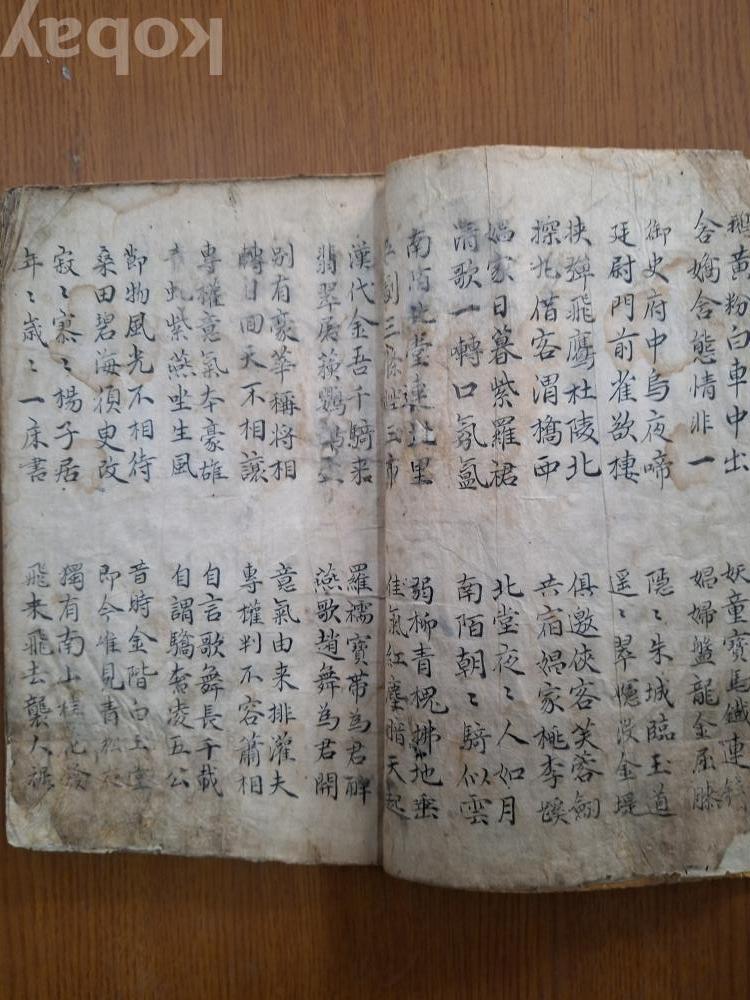 kobay
黃粉白車中出
含嬌含態情非一
妖童寶馬鐵連錢
娼婦盤龍金屈膝
御史府中烏夜啼
廷尉門前雀欲棲
隱〻朱城臨玉道
遥〻翠幰沒金堤
挾彈飛鷹杜陵北
探丸借客渭橋西
俱邀俠客芙蓉劒
共宿娼家桃李蹊
娼家日暮紫羅裙
清歌一轉口氛氳
北堂夜〻人如月
南陌朝〻騎似雲
南陌北堂連北里
劇三條控三市
弱柳青槐拂地垂
佳氣紅塵暗天起
漢代金吾千騎来
翡翠屠蘓鸚
羅襦寶帶為君解
燕歌趙舞為君開
別有豪華稱將相
轉日回天不相讓
意氣由来排灌夫
專權判不容蕭相
專權意氣本豪雄
青虬紫燕坐生風
自言歌舞長千載
自謂驕奢凌五公
節物風光不相待
桑田碧海須臾改
昔時金階白玉堂
即今惟見青松在
寂〻寥〻楊子居
年〻歲〻一床書
獨有南山桂花發
飛来飛去襲人裾